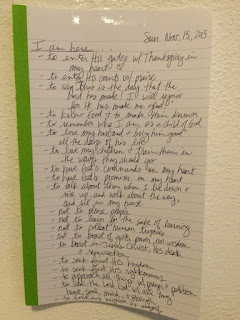 Sun Nov. 15, 2015
I am here...
- to enter His gates w/ Thanksgiving in
my heart! ♡
- to enter His courts w/ praise
- to say this is the day that the
Lord has made! I will rejoice
for He has made me glad!
- to know God & to make Him known
- to remember who I am as a child of God
- to love my husband & bring him good
all the days of his life!
- to love my children & train them in
the ways they should go
- to have God's commands on my heart
- to have God's promises on my heart
- to talk about them when I lie down &
rise up, and walk about the way,
and sit in my house
- not to please people
- not to learn for the sake of learning
- not to collect human trophies
- not to boast of gifts, power, or wisdom
- to boast in Jesus Christ, His death
& resurrection
- to seek first His kingdom
- to seek first His righteousness
- to approach all things w/ prayer & petition
- to seek the Lord w/ all my
heart, soul, mind, & strength
- to love my neighbor as myself